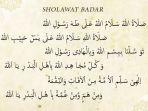 SHOLAWAT BADAR
صَلَاةُ اللهِ سَلَامُ اللهِ عَلَى طٰهَ رَسُوْلِ اللهِ
صَلَاةُ اللهِ سَلَامُ اللهِ عَلَى يٰسٓ حَبِيْبِ اللهِ
تَوَسَّلْنَا بِبِسْمِ اللهِ وَبِالْهَادِى رَسُوْلِ اللهِ
وَكُلِّ مُجَاهِدٍ لِلهِ بِأَهْلِ الْبَدْرِ يَا اللهُ
اِلٰهِى سَلِّمِ الْأُمَّةَ مِنَ الْآفَاتِ وَالنِّقْمَةِ
وَمِنْ هَمٍّ وَمِنْ غُمَّةٍ بِأَهْلِ الْبَدْرِ يَا اللهُ